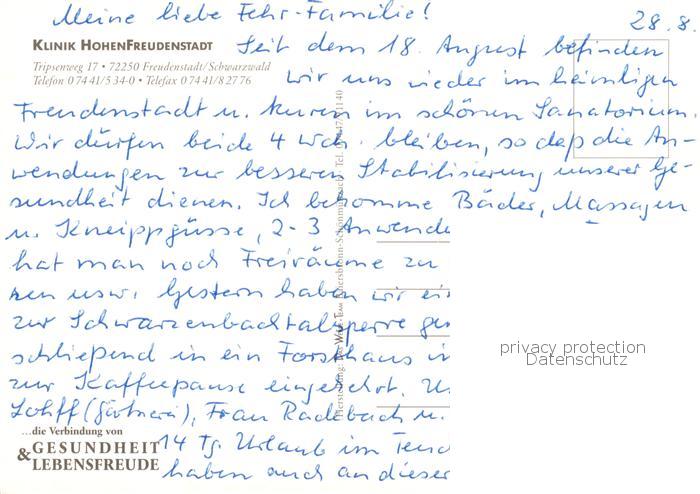 Meine liebe Fehr-Familie!
28.8.
KLINIK HOHENFREUDENSTADT
Tripsenweg 17 • 72250 Freudenstadt/Schwarzwald
Telefon 0 74 41/5 34-0 • Telefax 0 74 41/8 27 76
Seit dem 18. August befinden
wir uns wieder im heimligen
Freudenstadt u. kuren im schönen Sanatorium.
Wir dürfen beide 4 Wch. bleiben, so daß die An-
wendungen zur besseren Stabilisierung unserer Ge-
sundheit dienen. Ich bekomme Bäder, Massagen
u. Kneippgüsse, 2-3 Anwende
hat man noch Freiräume zu
ken usw. Gestern haben wir ei
zur Schwarzenbachtalsperre ge
schließend in ein Forsthaus i
zur Kaffeepause eingekehrt. U
Lohff (Gärtnerei), Frau Radebach u.
14 Tg. Urlaub im
haben auch an dieser
...die Verbindung von
GESUNDHEIT
& LEBENSFREUDE
privacy protection
Datenschutz